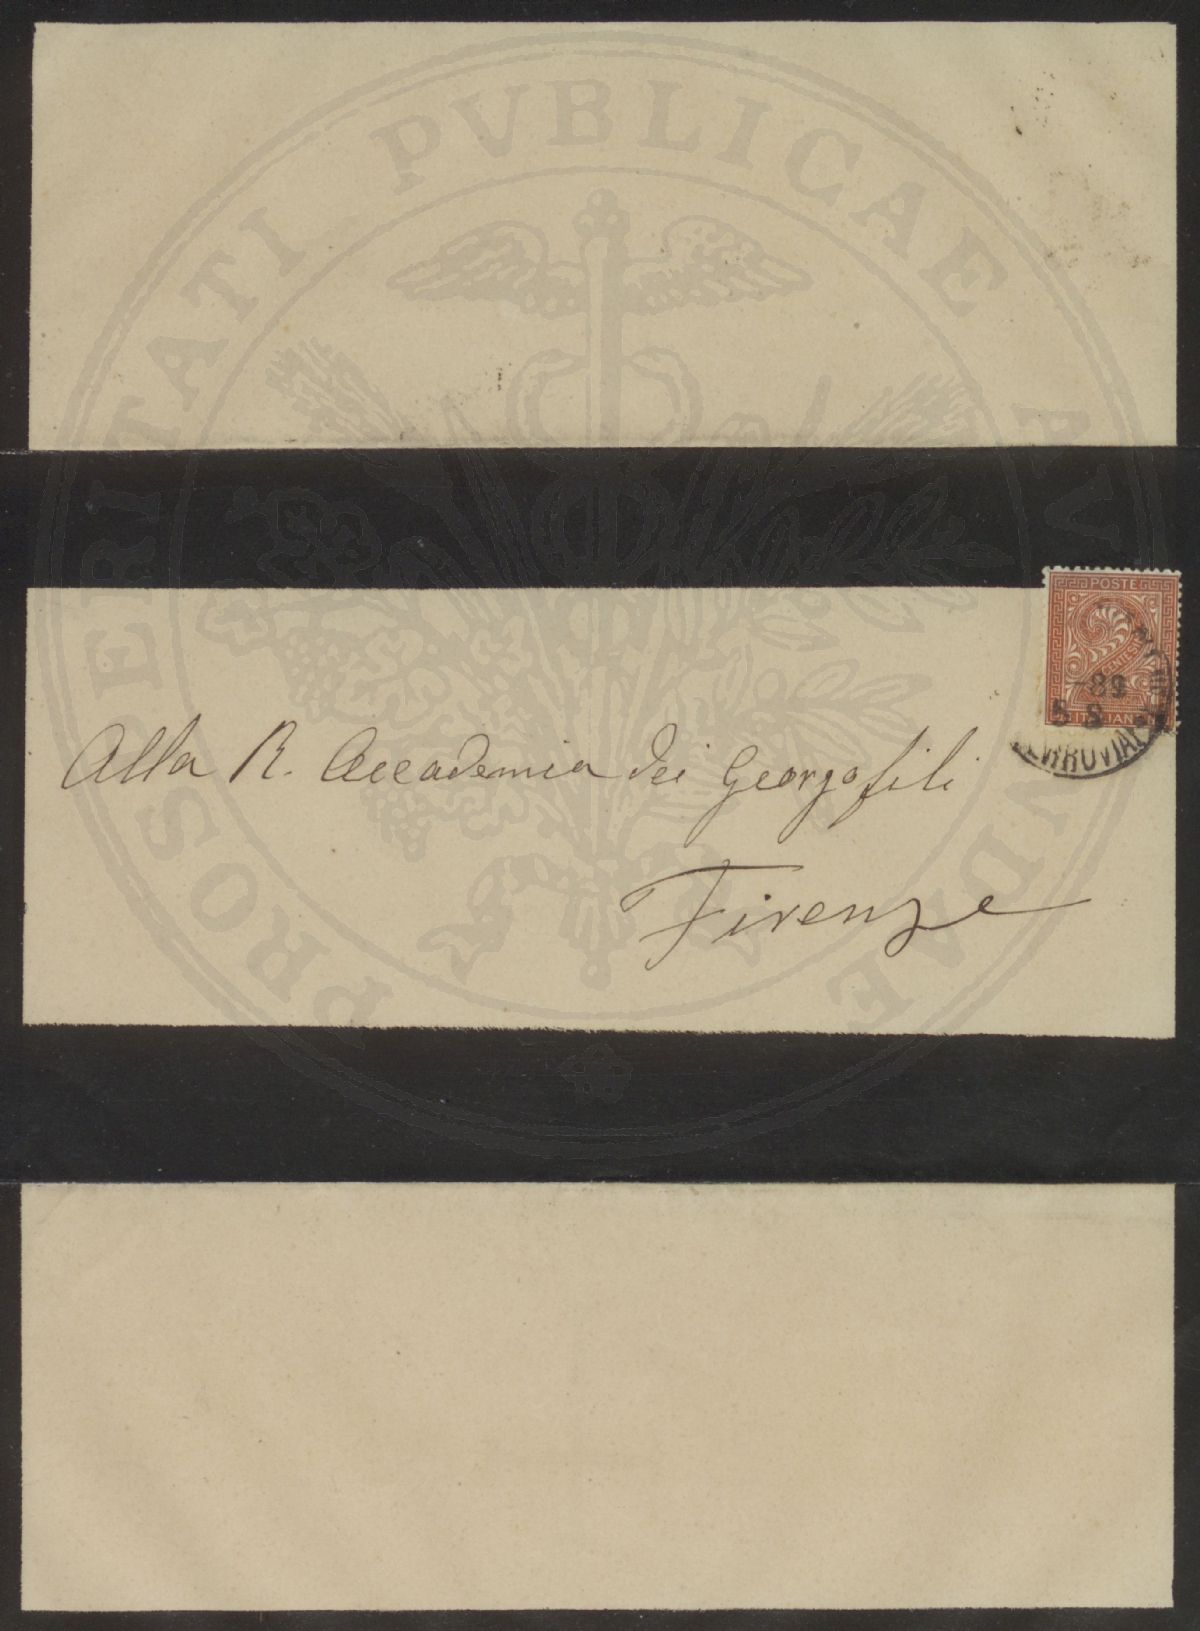 PROSPERITATI PVBLICAE AVGENDAE
POSTE
CENTES
ITALIAN
-89
5 S
FERROVIA
Alla R. Accademia dei Georgofili
Firenze